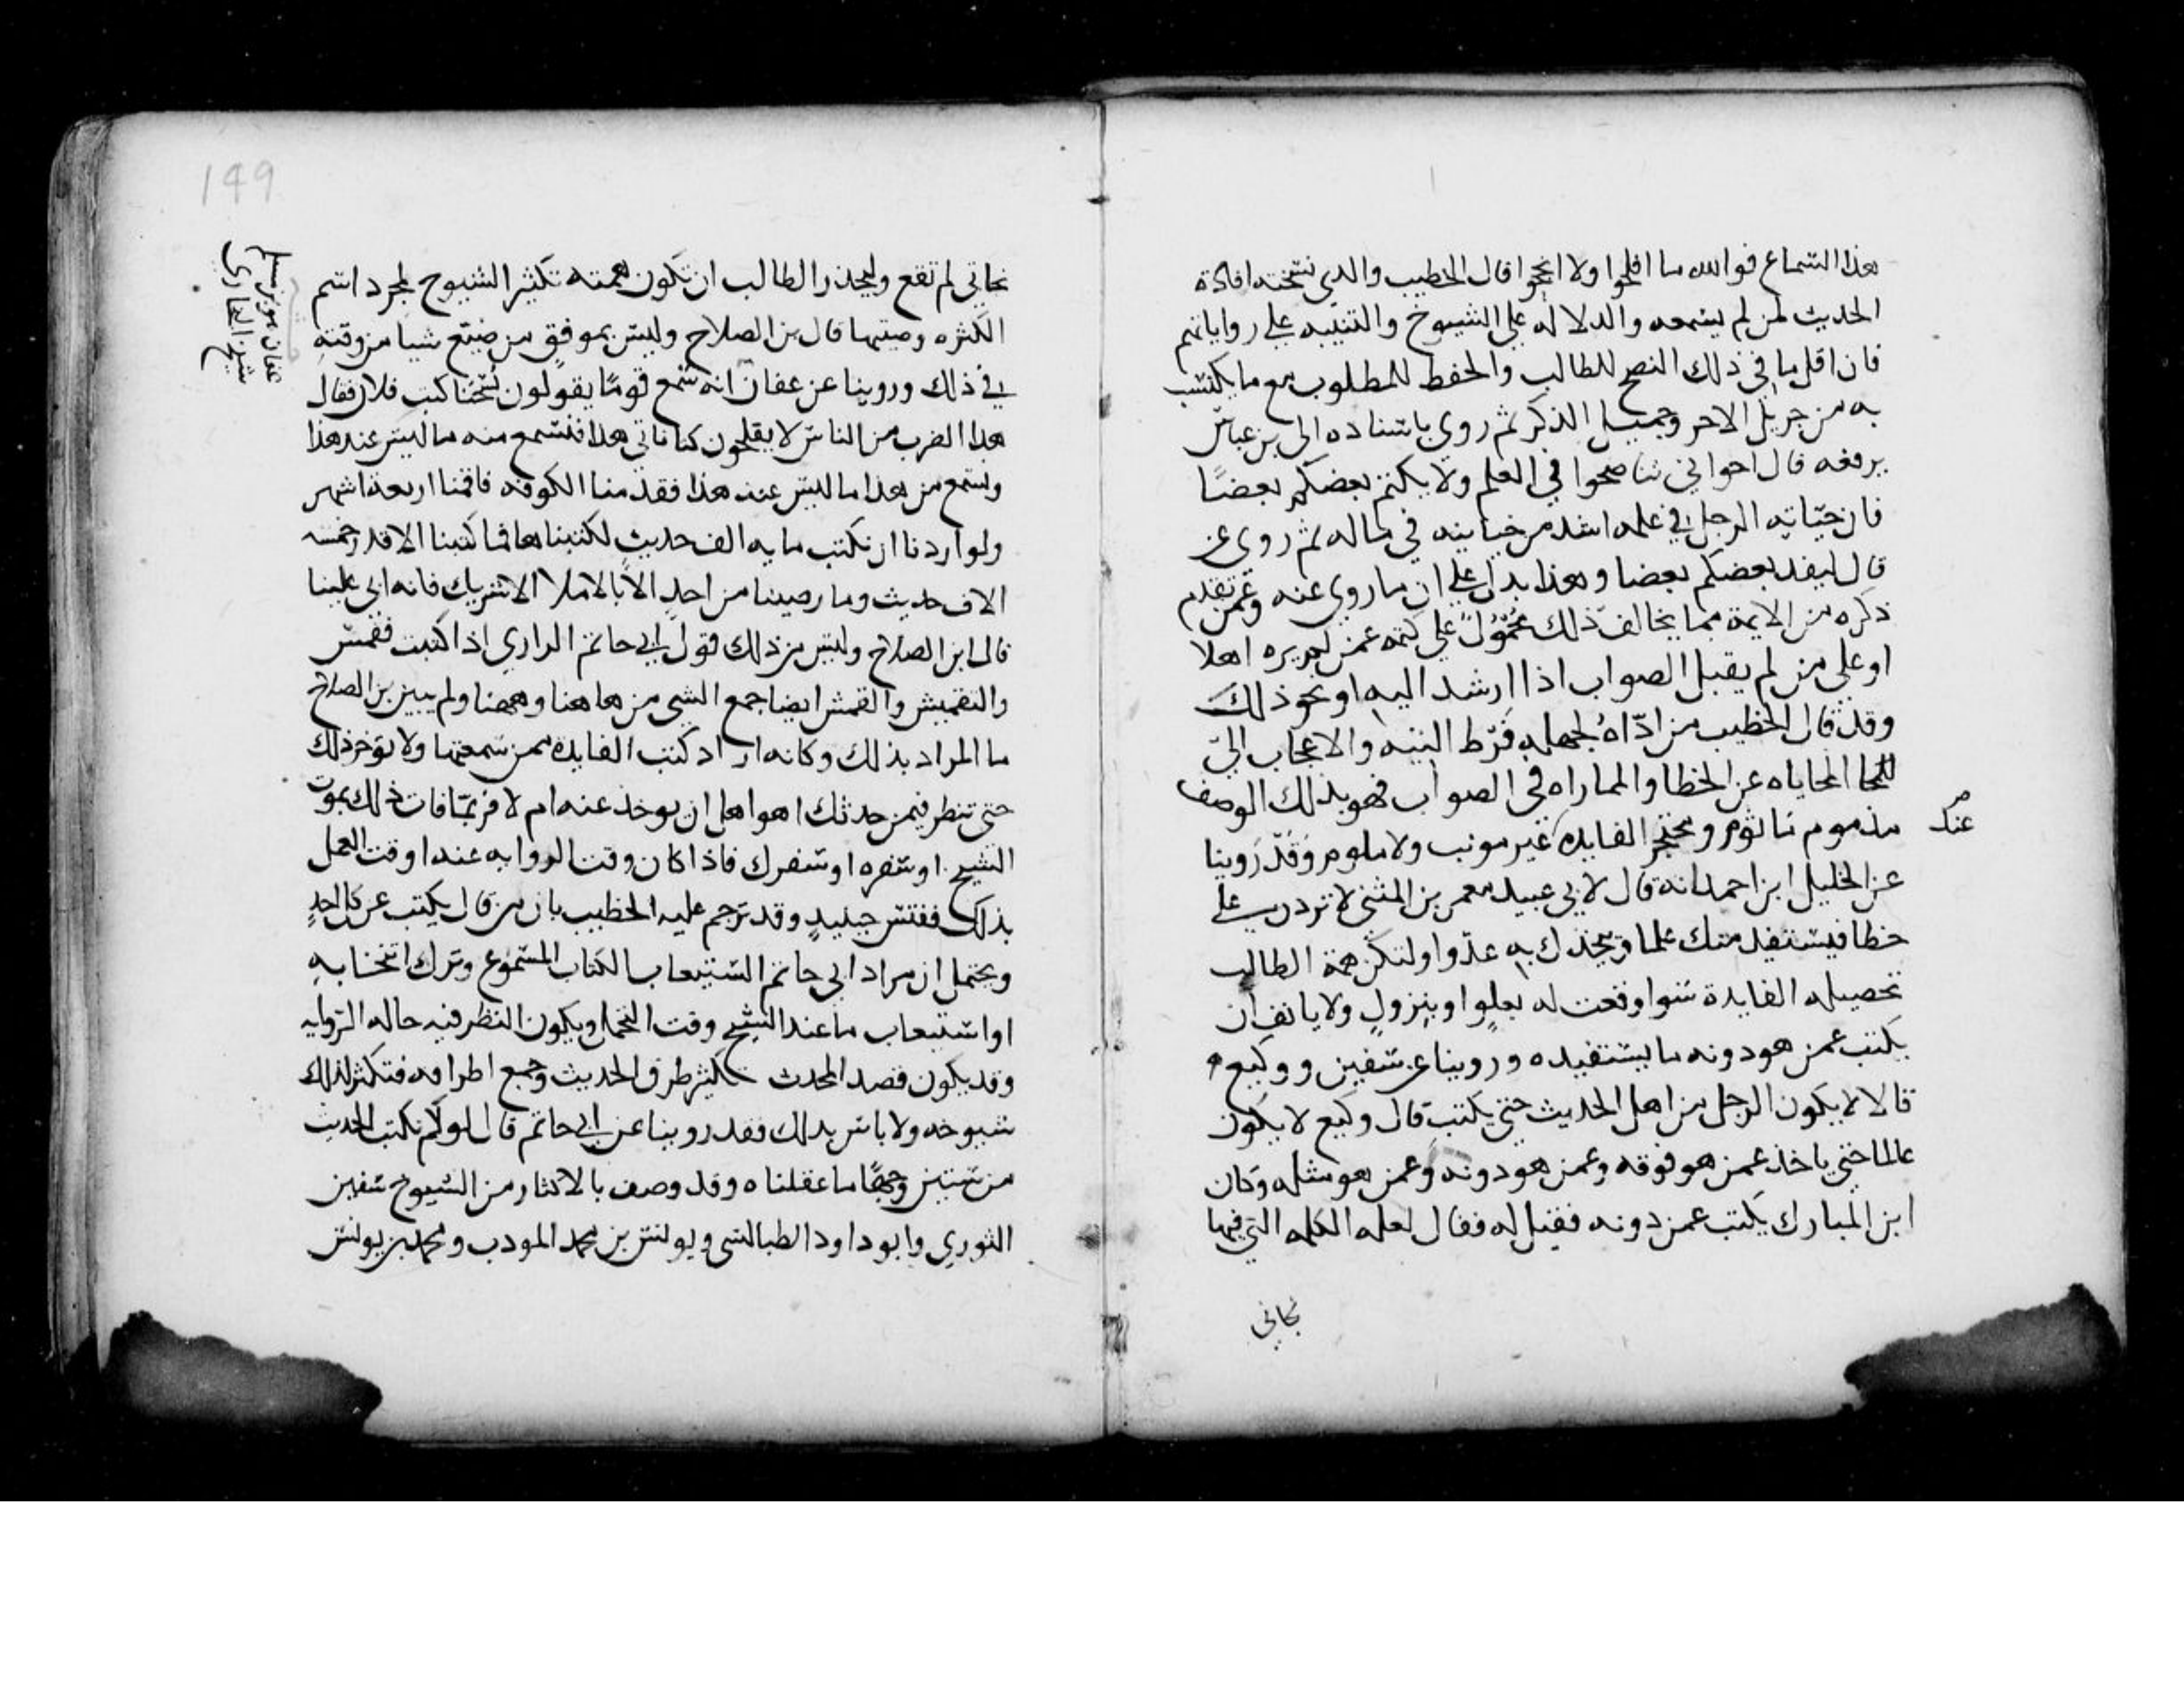 هذا السماع فوالله ما افلحوا ولا انجحوا قال الخطيب والذي نستحبه افادة
الحديث لمن لم يسمعه والدلالة على الشيوخ والتنبيه على رواياتهم
فان اقل ما في ذلك النصح للطالب والحفظ للمطلوب مع ما يكتسب
به من جزيل الاجر وجميل الذكر ثم روى باسناده الى بن عباس
يرفعه قال اخواني تناصحوا في العلم ولا يكتم بعضكم بعضا
فان خيانه الرجل في علمه اشد من خيانته في ماله ثم روى عن
قال ليفد بعضكم بعضا وهذا يدل على ان ما روى عنه وعمن تقدم
ذكره من الايمة مما يخالف ذلك محمول على كتمه عمن لم يره اهلا
او على من لم يقبل الصواب اذا ارشد اليه او نحو ذلك
وقد قال الخطيب من اداه لجهله فرط التيه والاعجاب الى
المحاماه عن الخطا والمماراه في الصواب فهو بذلك الوصف
مذموم ماثوم ومحتجر الفايده عنه غير مونب ولا ملوم وقد روينا
عن الخليل ابن احمد انه قال لابي عبيد معمر بن المثنى لا تردن على
خطا فيستفيد منك علما ويتخذك به عدوا ولتكن همة الطالب
تحصيله الفايدة سوا وقعت له بعلو او بنزول ولا يانف ان
يكتب عمن هو دونه ما يستفيده وروينا عن سفين ووكيع
قالا لا يكون الرجل من اهل الحديث حتى يكتب قال وكيع لا يكون
عالما حتى ياخذ عمن هو فوقه وعمن هو دونه وعمن هو مثله وكان
ابن المبارك يكتب عمن دونه فقيل له فقال لعله الكلمه التي فيها
نجاتي
نجاتي لم تقع وليحذر الطالب ان تكون همته تكثير الشيوخ لمجرد اسم
الكثره وصيتها قال بن الصلاح وليس بموفق من ضيع شيا من وقته
في ذلك وروينا عن عفان انه سمع قوما يقولون نسخنا كتب فلان فقال
هذا الضرب من الناس لا يفلحون كنا ناتي هذا فنسمع منه ما ليس عند هذا
ونسمع من هذا ما ليس عند هذا فقدمنا الكوفه فاقمنا اربعة اشهر
ولو اردنا ان نكتب مايه الف حديث لكتبناها فما كتبنا الا قدر خمسه
الاف حديث وما رضينا من احد الا بالاملا الا شريك فانه ابى علينا
قال ابن الصلاح وليس من ذلك قول ابي حاتم الرازي اذا كتبت فقمش
والتقميش والقمش ايضا جمع الشي من هاهنا وههنا ولم يبين بن الصلاح
ما المراد بذلك وكانه اراد كتب الفايدة ممن سمعتها ولا تؤخر ذلك
حتى تنظر فيمن حدثك اهو اهل ان يوخذ عنه ام لا فربما فات ذلك بموت
الشيخ او سفره او سفرك فاذا كان وقت الروايه عنه او وقت العمل
بذلك ففتش حينيذ وقد ترجم عليه الخطيب بان من قال يكتب عن كل احد
ويحتمل ان مراد ابي حاتم استيعاب الكتاب المسموع وترك انتخابه
او استيعاب ما عند الشيخ وقت التحمل ويكون النظر فيه حاله الروايه
وقد يكون قصد المحدث تكثير طرق الحديث وجمع اطرافه فتكثر لذلك
شيوخه ولا باس بذلك فقد روينا عن ابي حاتم قال لو لم نكتب الحديث
من ستين وجها ما عقلناه وقد وصف بالاكثار من الشيوخ سفين
الثوري وابو داود الطيالسي ويونس بن محمد المودب ومحمد بن يونس
عفان هو بن مسلم
شيخ البخاري
149